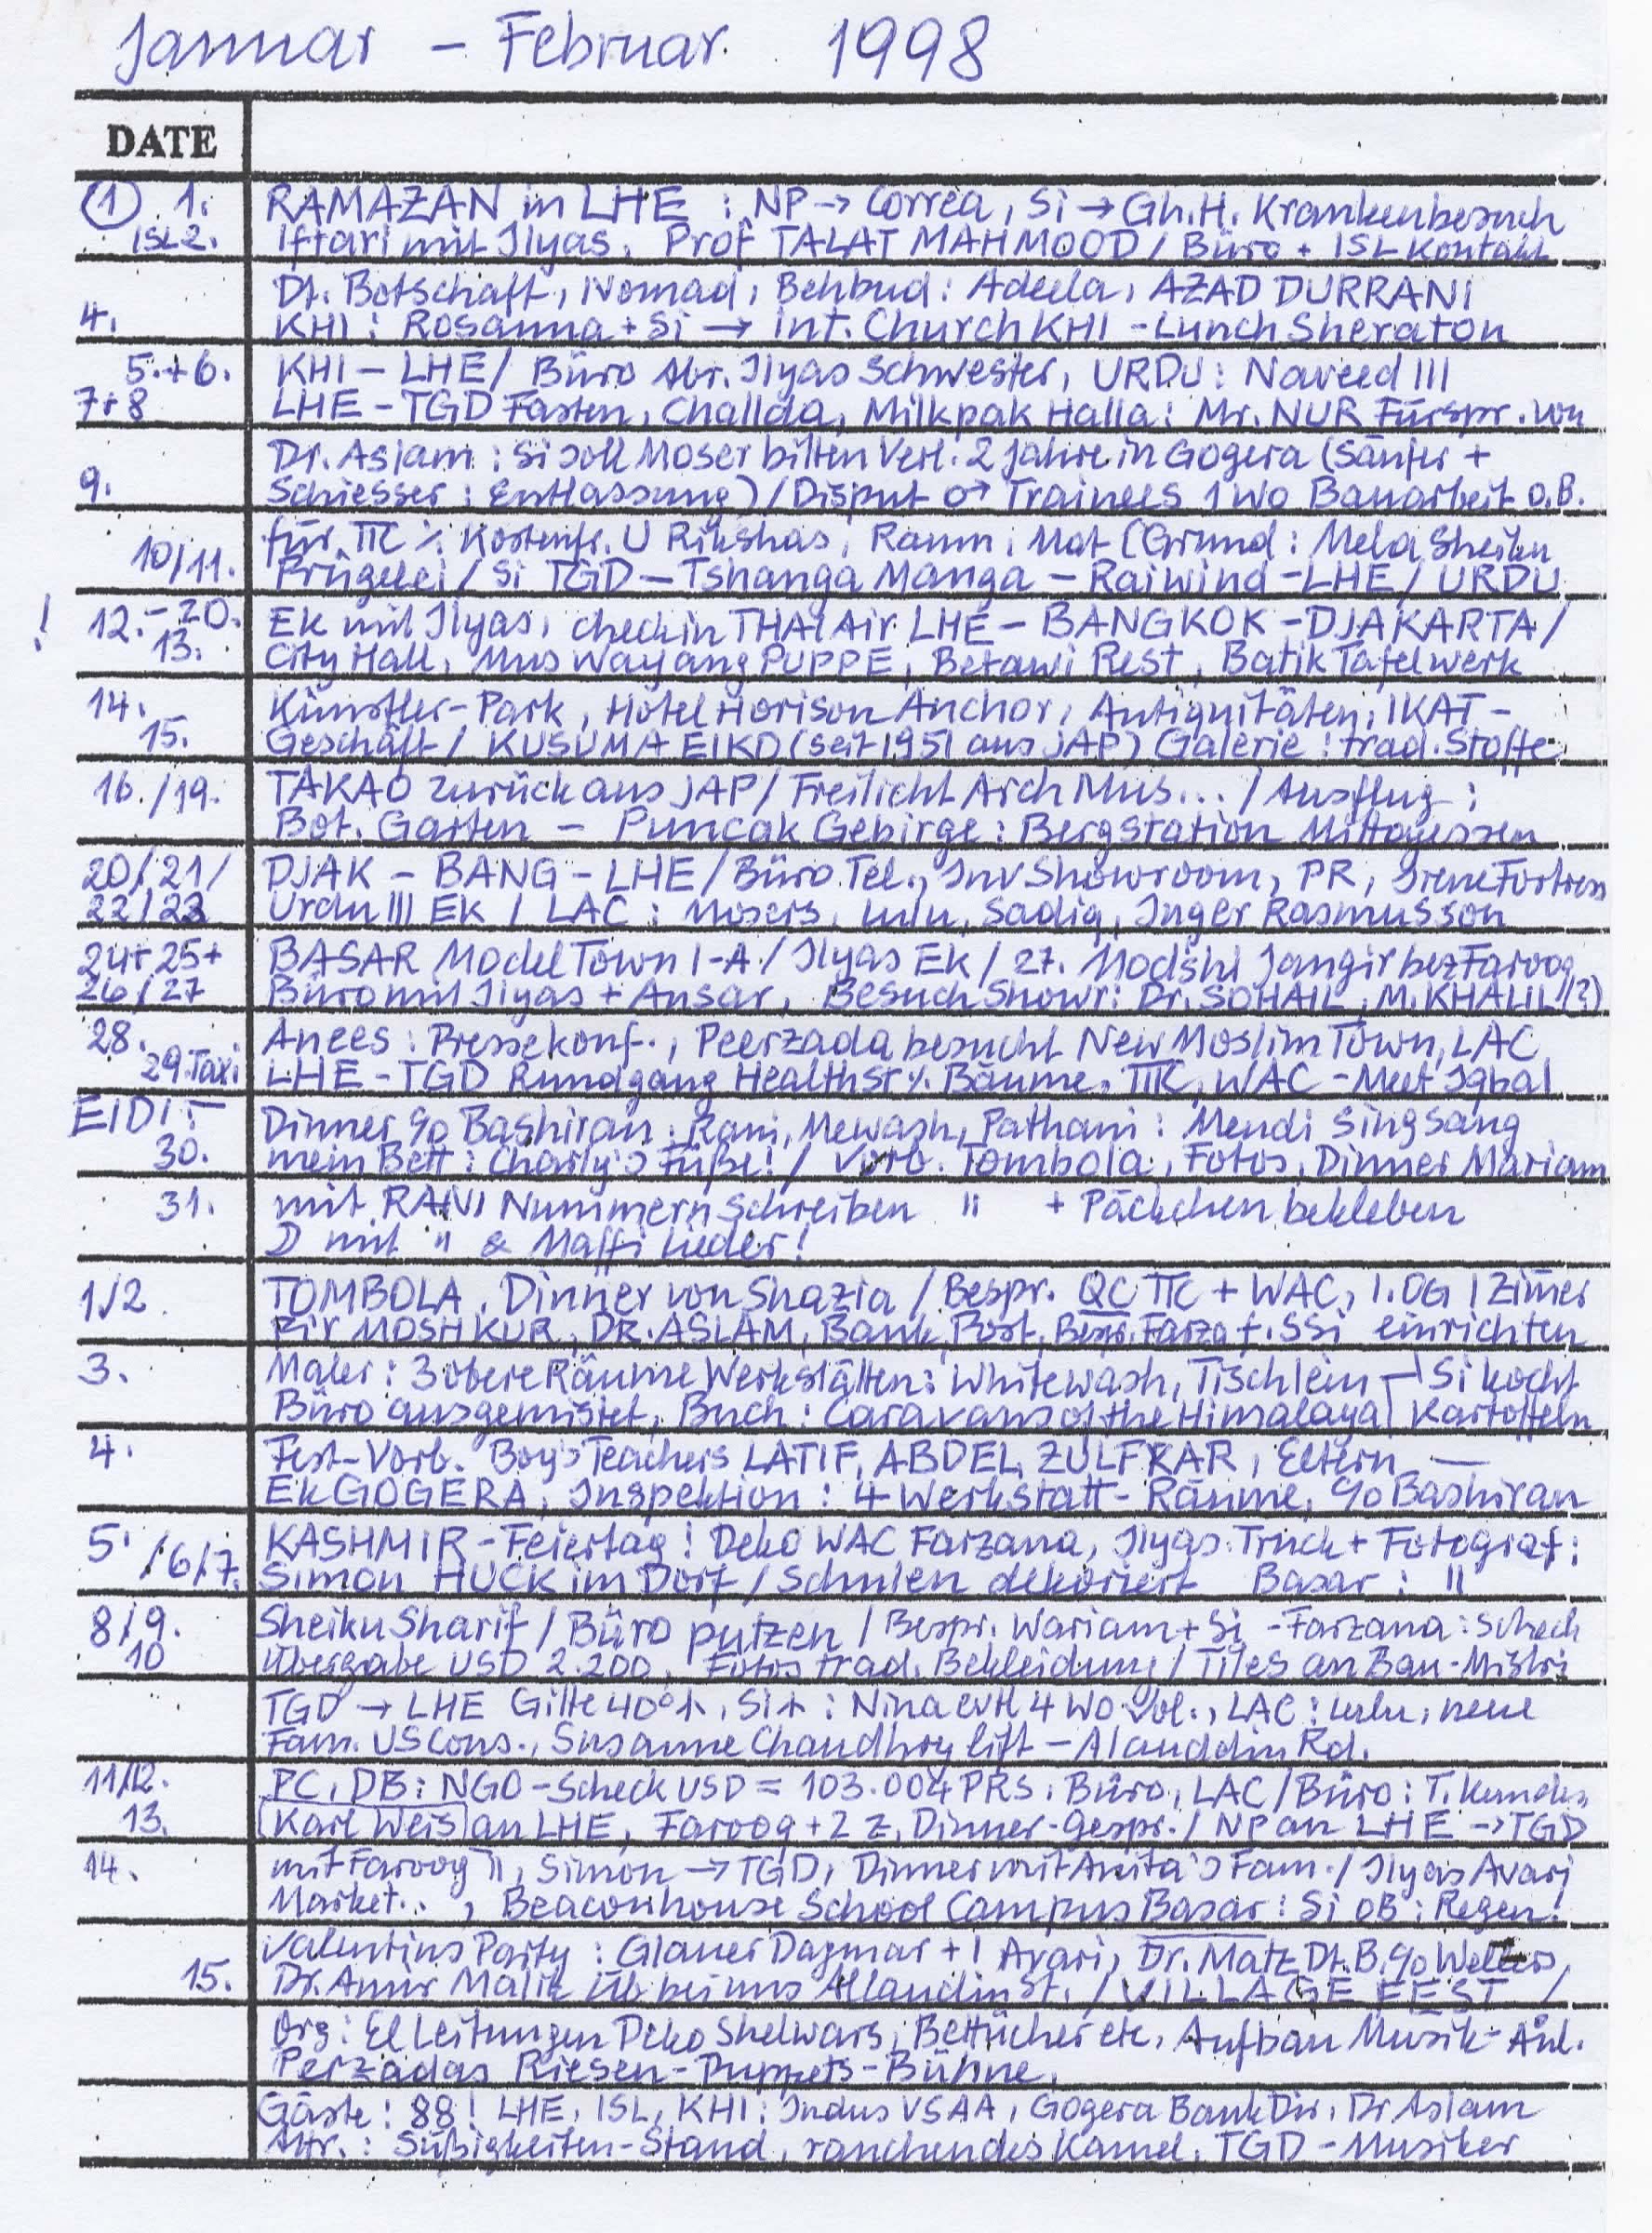 Januar - Februar 1998
DATE
① 1. RAMAZAN in LHE : NP → Correa, Si → Gh.H. Krankenbesuch
ISL 2. Iftari mit Ilyas, Prof TALAT MAHMOOD / Büro + ISL Kontakt
Dt. Botschaft, Nomad, Behbud: Adeela, AZAD DURRANI
4. KHI: Rosanna + Si → Int. Church KHI - Lunch Sheraton
5.+6. KHI - LHE / Büro Abr. Ilyas Schwester, URDU: Naveed III
7+8 LHE - TGD Fasten, Challda, Milkpak Halla: Mr. NUR Fürspr. von
Dr. Aslam: Si soll Moser bitten Verl. 2 Jahre in Gogera (Säufer +
9. Schiesser: Entlassung) / Disput ♂ Trainees 1 Wo Bauarbeit o.B.
für TTC ٪ Kostenfr. U Rikshas, Raum, Mat (Grund: Mela Sheiku
10/11. Prügelei / Si TGD - Tshanga Manga - Raiwind - LHE / URDU
! 12.-20. Ek mit Ilyas, check in THAI Air LHE - BANGKOK - DJAKARTA /
13. City Hall, Mus Wayang PUPPE, Betawi Rest, Batik Tafelwerk
14. Künstler-Park, Hotel Horison Anchor, Antiquitäten, IKAT-
15. Geschäft / KUSUMA EIKO (seit 1951 aus JAP) Galerie: trad. Stoffe
16./19. TAKAO zurück aus JAP / Freilicht Arch Mus... / Ausflug:
Bot. Garten - Puncak Gebirge: Bergstation Mittagessen
20/21/ DJAK - BANG - LHE / Büro Tel., Inv Showroom, PR, Irene Fortress
22/23 Urdu III Ek / LAC: Mosers, Lulu, Sadiq, Inger Rasmusson
24+25+ BASAR Model Town 1-A / Ilyas Ek / 27. Jangir bez Farooq
26/27 Büro mit Ilyas + Ansar, Besuch Showr: Dr. SOHAIL, M. KHALIL (?)
28. Anees: Pressekonf., Peerzada besucht New Moslim Town, LAC
29. Taxi LHE - TGD Rundgang Healthstr ٪ Bäume, TTC, WAC - Meet Iqbal
EIDI:- Dinner c/o Bashiran: Rani, Mewash, Pathani: Mendi Singsang
30. mein Bett: Charly's Füße! / Vorb. Tombola, Fotos, Dinner Mariam
31. mit RANI Nummern schreiben " + Päckchen bekleben
D mit " & Maffi Lieder!
1./2. TOMBOLA, Dinner von Shazia / Bespr. QC TTC + WAC, 1. OG 1 Zimmer
Pir MOSHKUR, DR. ASLAM, Bank, Post, Bespr. Farza f. SSi einrichten
3. Maler: 3 obere Räume Werkstätten: Whitewash, Tischlein ⌐ Si kocht
Büro ausgemistet, Buch: Caravans of the Himalaya | Kartoffeln
4. Fest-Vorb. Boy's Teachers LATIF, ABDEL, ZULFKAR, Eltern —
Ek GOGERA, Inspektion: 4 Werkstatt-Räume, c/o Bashiran
5. KASHMIR-Feiertag! Deko WAC Farzana, Ilyas: Truck + Fotograf:
/6/7. Simon HUCK im Dorf / Schulen dekoriert Basar: "
8/9. Sheiku Sharif / Büro putzen / Bespr. Mariam + Si - Farzana: Scheck
10 Übergabe USD 2.200, Fotos trad. Bekleidung / Tiles an Bau-Mistri
TGD → LHE Si + : Nina evtl 4 Wo Vol., LAC: Lulu, neue
Fam. US Cons., Susanne Chaudhry lift - Alauddin Rd.
11/12. PC, DB: NGO-Scheck USD = 103.004 PRS: Büro, LAC / Büro: T. Kunden
13. Karl Weis an LHE, Farooq + 2 Z, Dinner-Gespr. / NP an LHE → TGD
14. mit Farooq ", Simon → TGD, Dinner mit Anita's Fam. / Ilyas Avari
Market.. , Beaconhouse School Campus Basar: Si OB: Regen!
Valentins Party: Glauer Dagmar + 1 Avari, Dr. Matz Dt.B. c/o Welters,
15. Dr. Amir Malik Üb bei uns Allaudin St. / VILLAGE FEST /
Org: El Leitungen Deko Shelwars, Bettücher etc, Aufbau Musik-Anl.
Perzadas Riesen-Puppets-Bühne,
Gäste: 88! LHE, ISL, KHI: Indus VSAA, Gogera Bank Dir, Dr Aslam
Attr.: Süßigkeiten-Stand, rauchendes Kamel, TGD-Musiker